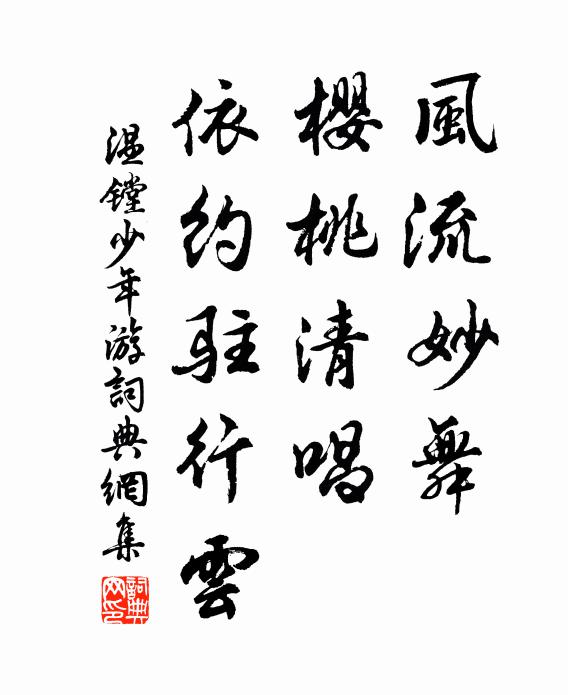 風流妙舞
櫻桃清唱
依約駐行雲
温鏜少年游詞典網集
詞典网印